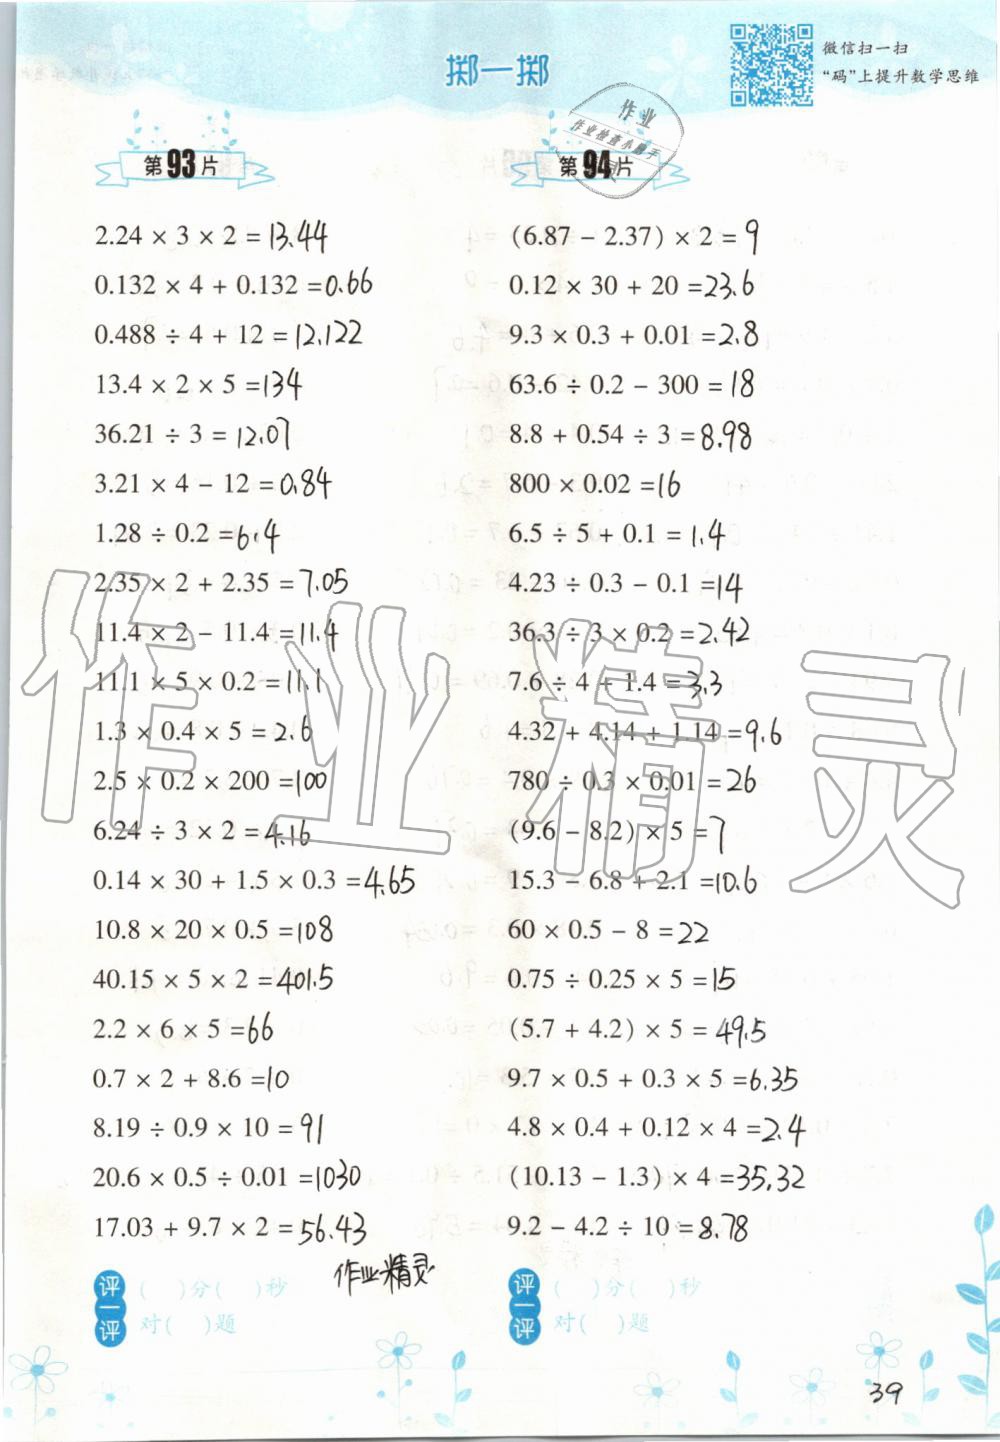 掷一掷
微信扫一扫
“码”上提升数学思维
作业
作业检查小帮手
第93片
2.24 × 3 × 2 = 13.44
0.132 × 4 + 0.132 = 0.66
0.488 ÷ 4 + 12 = 12.122
13.4 × 2 × 5 = 134
36.21 ÷ 3 = 12.07
3.21 × 4 − 12 = 0.84
1.28 ÷ 0.2 = 6.4
2.35 × 2 + 2.35 = 7.05
11.4 × 2 − 11.4 = 11.4
11.1 × 5 × 0.2 = 11.1
1.3 × 0.4 × 5 = 2.6
2.5 × 0.2 × 200 = 100
6.24 ÷ 3 × 2 = 4.16
0.14 × 30 + 1.5 × 0.3 = 4.65
10.8 × 20 × 0.5 = 108
40.15 × 5 × 2 = 401.5
2.2 × 6 × 5 = 66
0.7 × 2 + 8.6 = 10
8.19 ÷ 0.9 × 10 = 91
20.6 × 0.5 ÷ 0.01 = 1030
17.03 + 9.7 × 2 = 56.43
作业精灵
评一评
( )分( )秒
对( )题
第94片
(6.87 − 2.37) × 2 = 9
0.12 × 30 + 20 = 23.6
9.3 × 0.3 + 0.01 = 2.8
63.6 ÷ 0.2 − 300 = 18
8.8 + 0.54 ÷ 3 = 8.98
800 × 0.02 = 16
6.5 ÷ 5 + 0.1 = 1.4
4.23 ÷ 0.3 − 0.1 = 14
36.3 ÷ 3 × 0.2 = 2.42
7.6 ÷ 4 + 1.4 = 3.3
4.32 + 4.14 + 1.14 = 9.6
780 ÷ 0.3 × 0.01 = 26
(9.6 − 8.2) × 5 = 7
15.3 − 6.8 + 2.1 = 10.6
60 × 0.5 − 8 = 22
0.75 ÷ 0.25 × 5 = 15
(5.7 + 4.2) × 5 = 49.5
9.7 × 0.5 + 0.3 × 5 = 6.35
4.8 × 0.4 + 0.12 × 4 = 2.4
(10.13 − 1.3) × 4 = 35.32
9.2 − 4.2 ÷ 10 = 8.78
评一评
( )分( )秒
对( )题
39
作业精灵